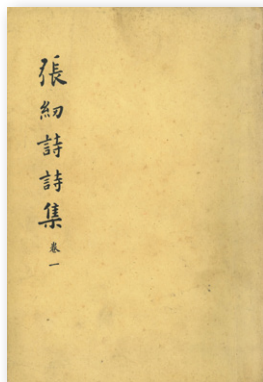 張紉詩詩集 卷一